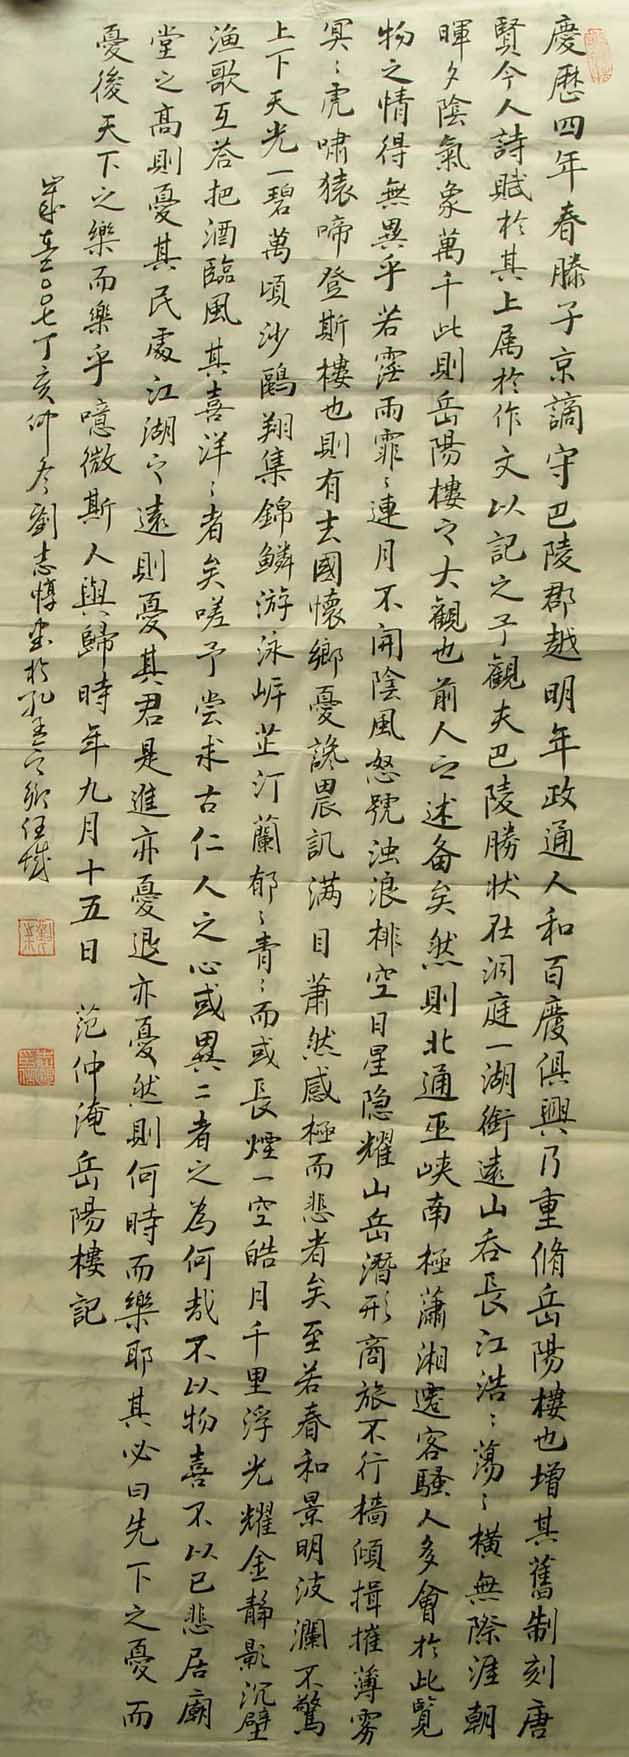 慶歷四年春滕子京謫守巴陵郡越明年政通人和百廢俱興乃重脩岳陽樓也增其舊制刻唐
賢今人詩賦於其上属於作文以記之予觀夫巴陵勝狀在洞庭一湖銜遠山吞長江浩〻蕩〻橫無際涯朝
暉夕陰氣象萬千此則岳陽樓之大觀也前人之述备矣然則北通巫峽南極瀟湘遷客騷人多會於此覽
物之情得無異乎若霪雨霏〻連月不開陰風怒號浊浪排空日星隐耀山岳潛形商旅不行檣傾揖摧薄雾
冥〻虎嘯猿啼登斯樓也則有去國懷鄉憂讒畏譏满目蕭然感極而悲者矣至若春和景明波瀾不驚
上下天光一碧萬頃沙鷗翔集錦鱗游泳岸芷汀蘭郁〻青〻而或長煙一空皓月千里浮光耀金静影沉壁
渔歌互答把酒臨風其喜洋〻者矣嗟予尝求古仁人之心或異二者之為何哉不以物喜不以己悲居廟
堂之高則憂其民處江湖之遠則憂其君是進亦憂退亦憂然則何時而樂耶其必曰先下之憂而
憂後天下之樂而樂乎噫微斯人與歸時年九月十五日 范仲淹岳陽樓記
歲在二〇〇七丁亥仲冬劉志惇書於孔孟之鄉任城